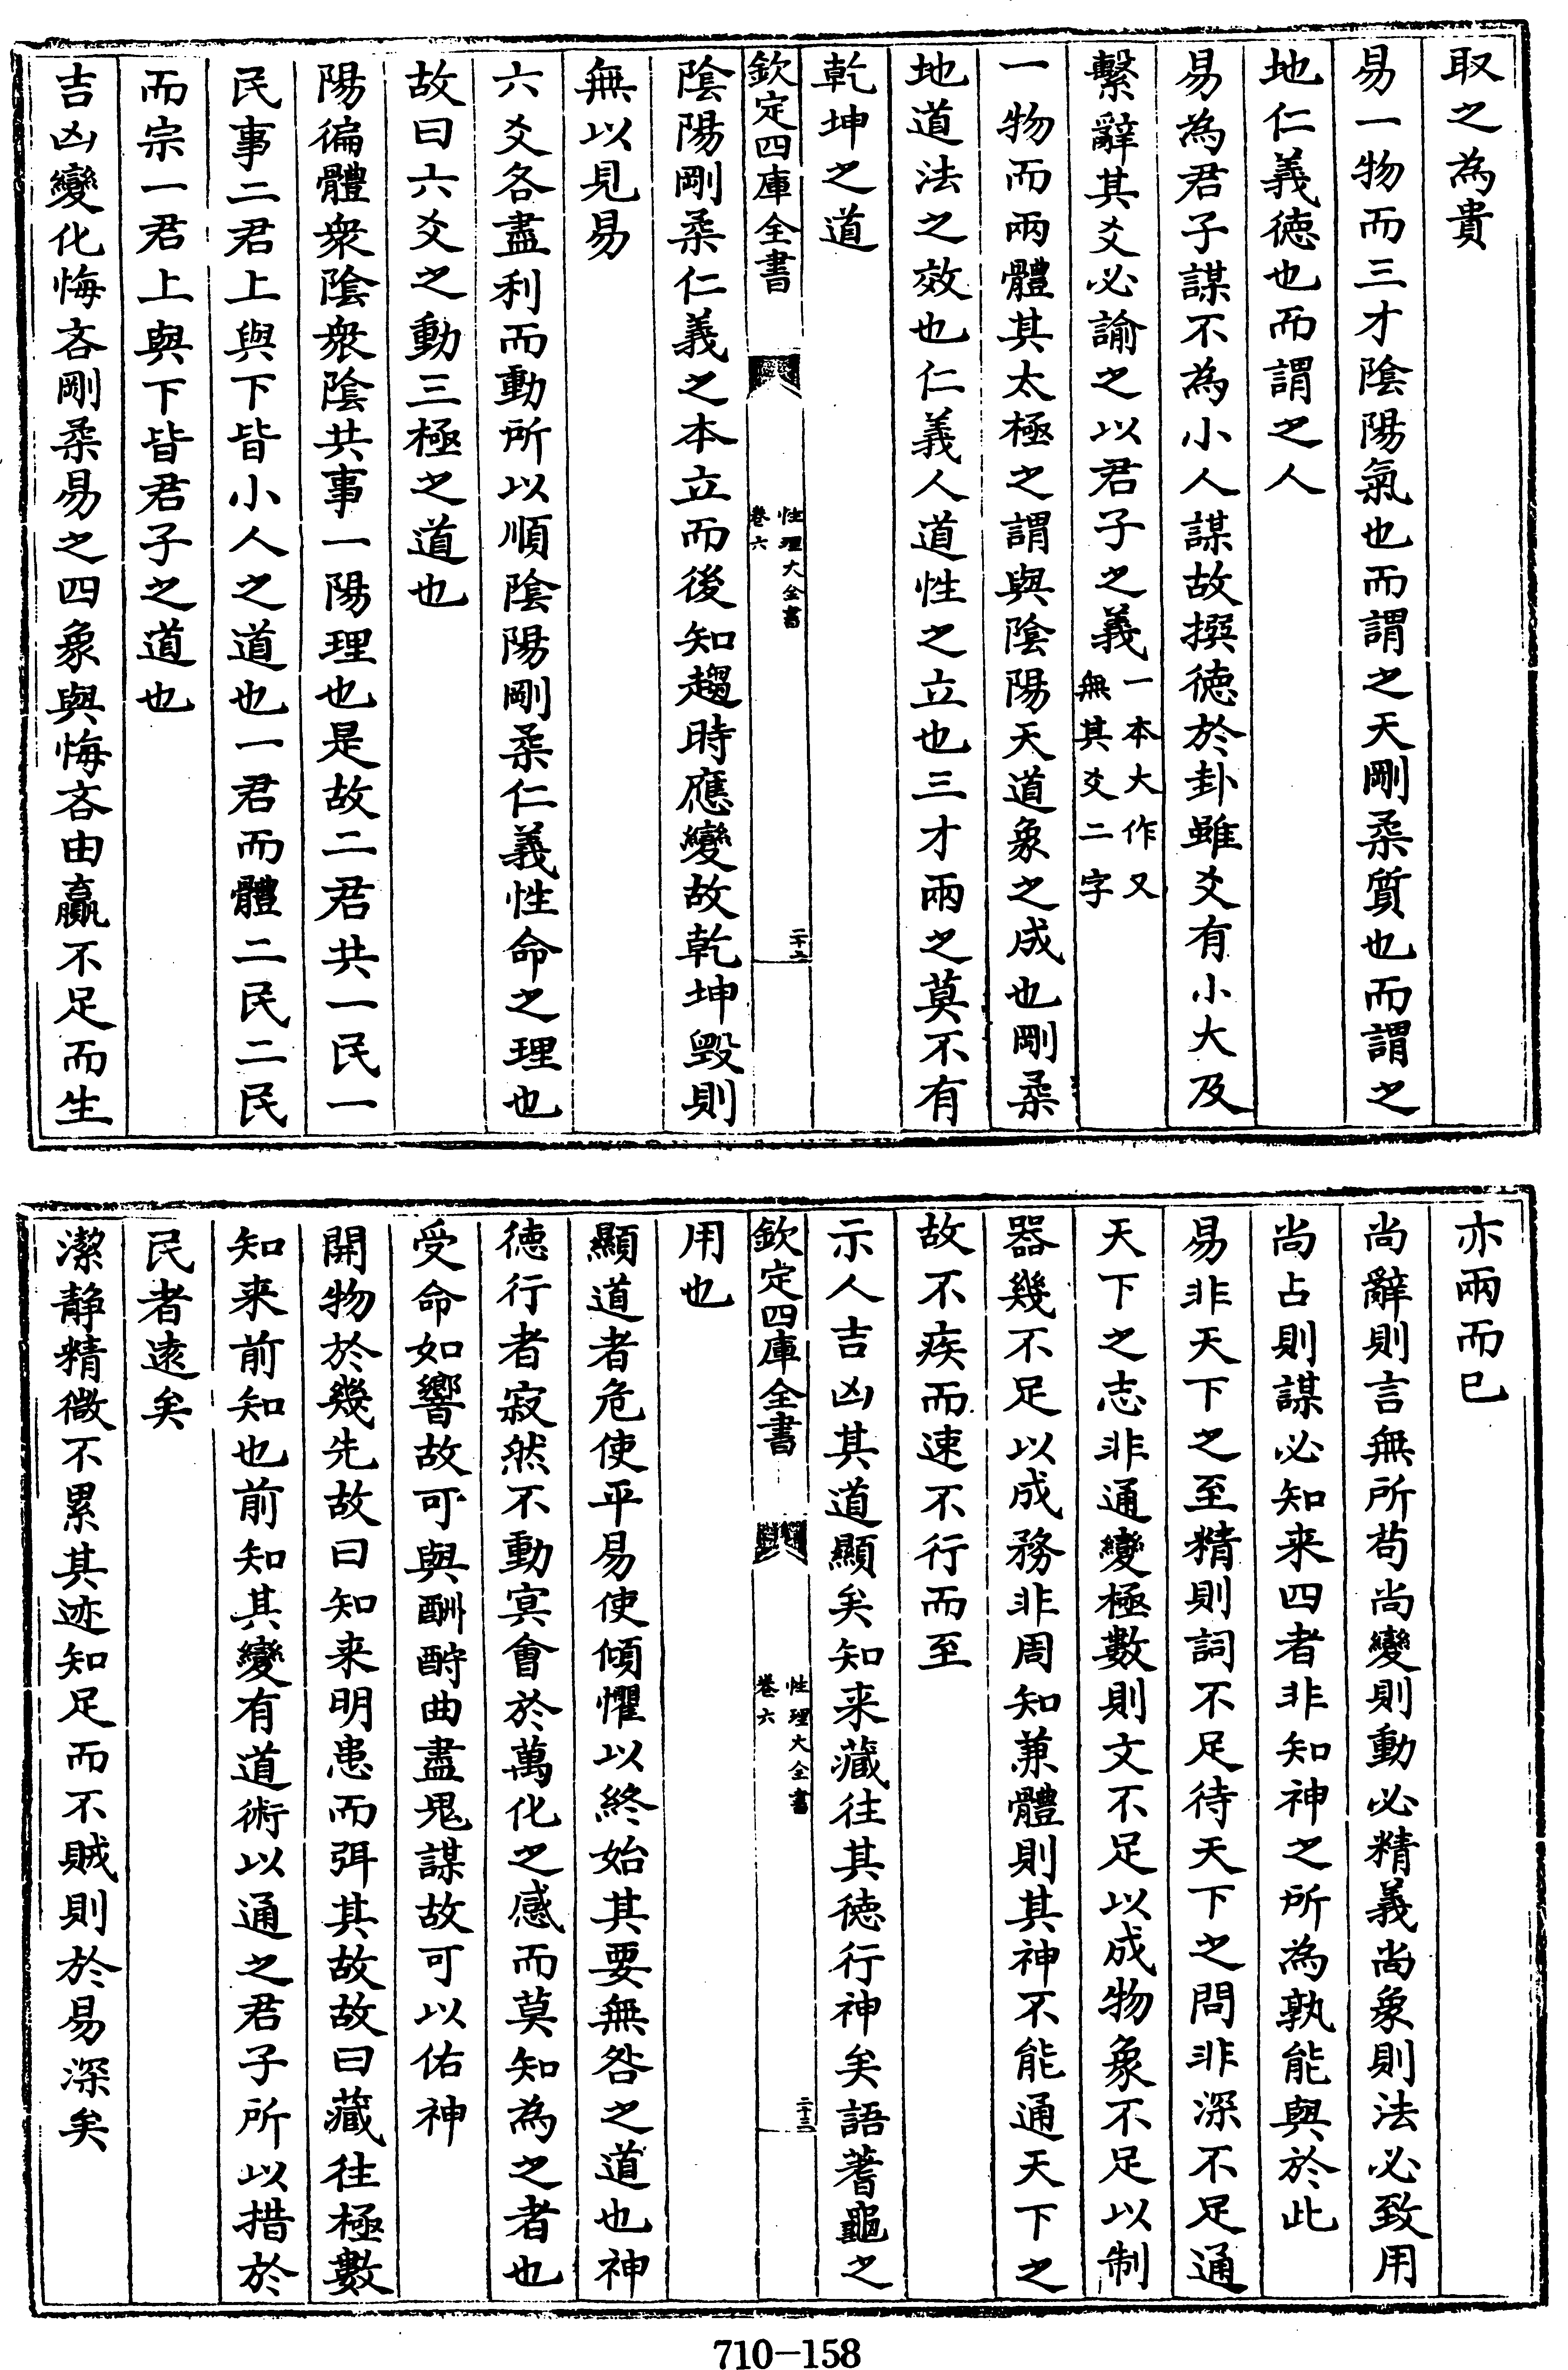 取之為貴
易一物而三才陰陽氣也而謂之天剛柔質也而謂之
地仁義徳也而謂之人
易為君子謀不為小人謀故撰徳於卦雖爻有小大及
繫辭其爻必諭之以君子之義一本大作又無其爻二字
一物而兩體其太極之謂與陰陽天道象之成也剛柔
地道法之效也仁義人道性之立也三才兩之莫不有
乾坤之道
欽定四庫全書 性理大全書卷六 二十二
陰陽剛柔仁義之本立而後知趨時應變故乾坤毁則
無以見易
六爻各盡利而動所以順陰陽剛柔仁義性命之理也
故曰六爻之動三極之道也
陽徧體衆陰衆陰共事一陽理也是故二君共一民一
民事二君上與下皆小人之道也一君而體二民二民
而宗一君上與下皆君子之道也
吉凶變化悔吝剛柔易之四象與悔吝由羸不足而生
亦兩而已
尚辭則言無所苟尚變則動必精義尚象則法必致用
尚占則謀必知来四者非知神之所為孰能與於此
易非天下之至精則詞不足待天下之問非深不足通
天下之志非通變極數則文不足以成物象不足以制
器幾不足以成務非周知兼體則其神不能通天下之
故不疾而速不行而至
示人吉凶其道顯矣知来藏往其徳行神矣語蓍龜之
欽定四庫全書 性理大全書卷六 二十三
用也
顯道者危使平易使傾懼以終始其要無咎之道也神
徳行者寂然不動冥會於萬化之感而莫知為之者也
受命如響故可與酬酢曲盡鬼謀故可以佑神
開物於幾先故曰知来明患而弭其故故曰藏往極數
知来前知也前知其變有道術以通之君子所以措於
民者逺矣
潔静精微不累其迹知足而不賊則於易深矣
710-158